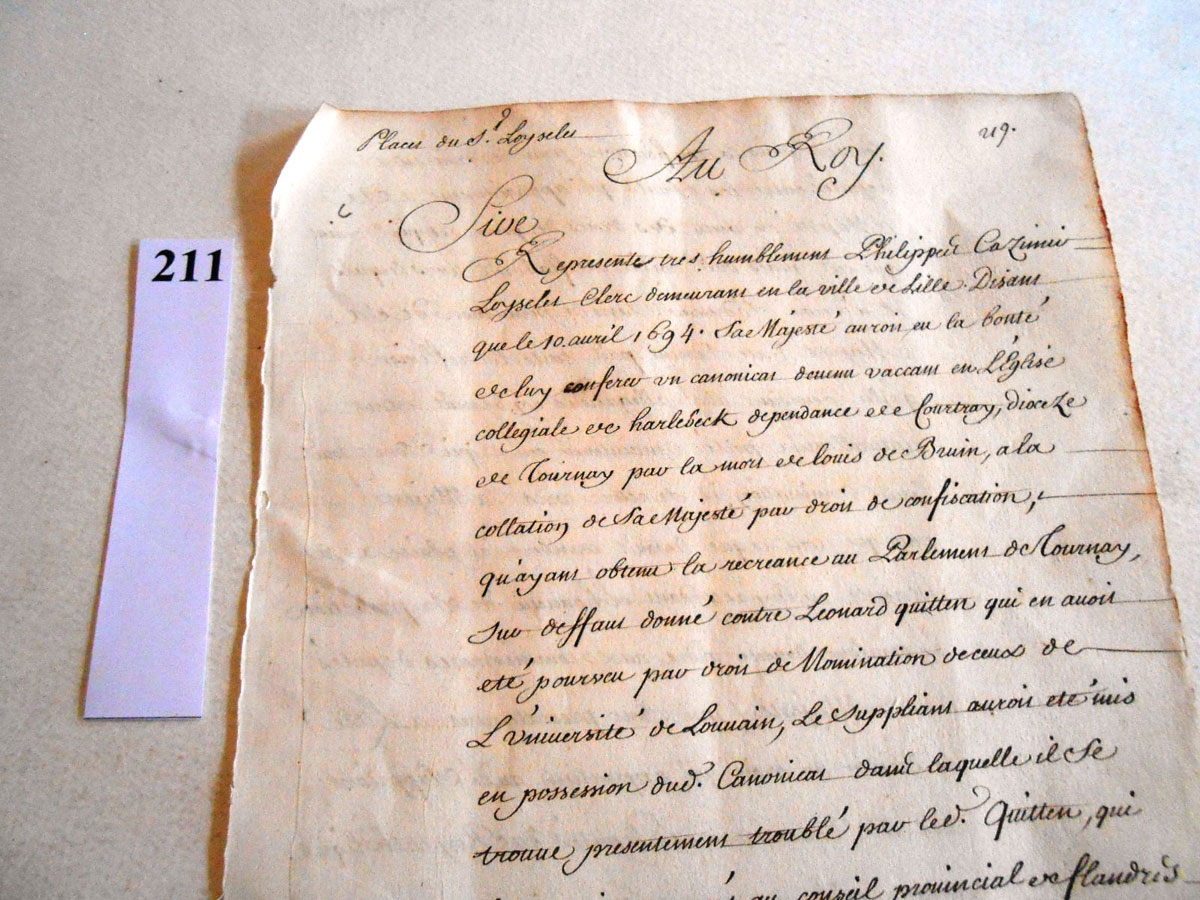 Placet du Sr. Loyseles
219.
Au Roy.
Sire
211
Represente tres humblement Philippe Cazimir
Loyseles Clerc demeurant en la ville de Lille. Disant
que le 10. avril 1694. Sa Majesté auroit eu la bonté
de luy conferer un canonicat devenu vaccant en L'Eglise
collegiale de harlebeck dependance de Courtray, dioceze
de Tournay par la mort de louis de Bruin, a la
collation de Sa Majesté par droit de confiscation,
qu'ayant obtenu la recreance au Parlement de Tournay,
sur deffaut donné contre Leonard quitten qui en avoit
eté pourveu par droit de Nomination de ceux de
L'Université de Louvain, Le Suppliant auroit eté mis
en possession dud. Canonicat dans laquelle il Se
trouve presentement troublé par led. Quitten, qui
au conseil provincial de flandres